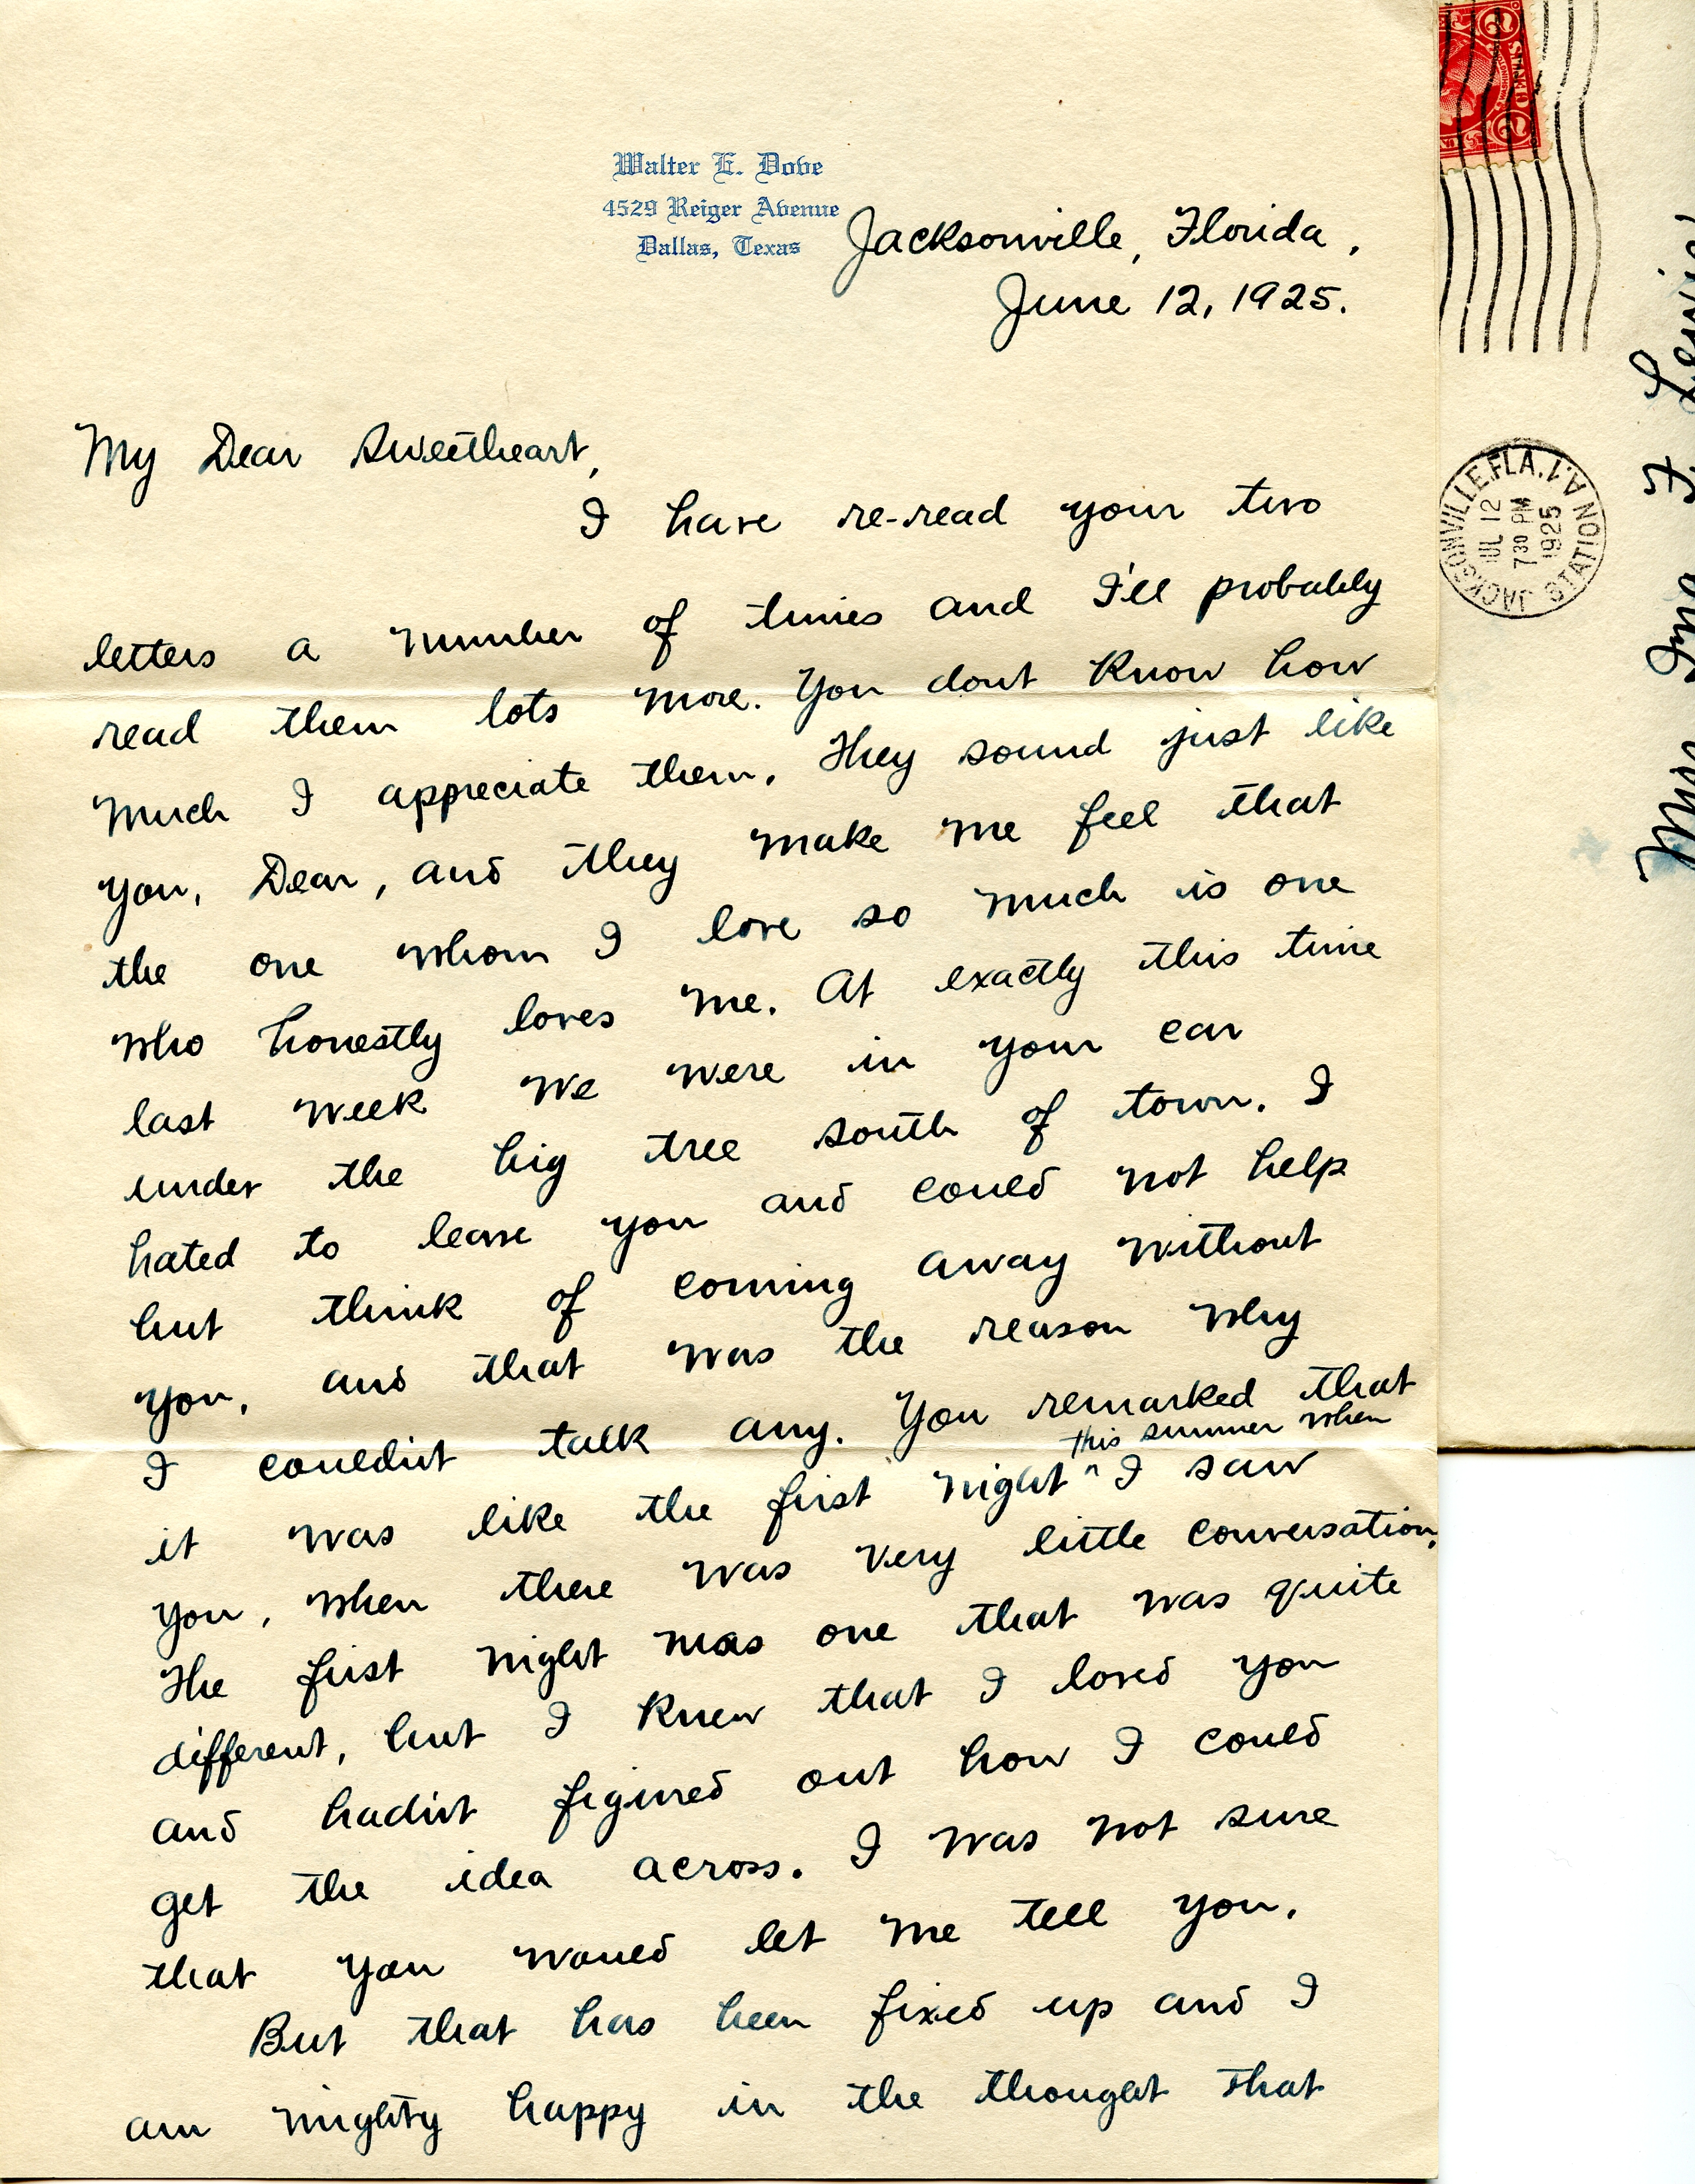 Walter E. Dove
4529 Reiger Avenue
Dallas, Texas
Jacksonville, Florida,
June 12, 1925.
My Dear Sweetheart,
I have re-read your two
letters a number of times and I'll probably
read them lots more. You dont know how
much I appreciate them. They sound just like
you, Dear, and they make me feel that
the one whom I love so much is one
who honestly loves me. At exactly this time
last week we were in your car
under the big tree south of town. I
hated to leave you and could not help
but think of coming away without
you, and that was the reason why
I couldn't talk any. You remarked that
this summer when
it was like the first night ^ I saw
you, when there was very little conversation.
The first night was one that was quite
different, but I knew that I loved you
and hadn't figured out how I could
get the idea across. I was not sure
that you would let me tell you.
But that has been fixed up and I
am mighty happy in the thought that
2 CENTS 2
JACKSONVILLE, FLA. V.A. STATION
JUL 12
7 30 PM
1925
Miss Ina F. Lewis